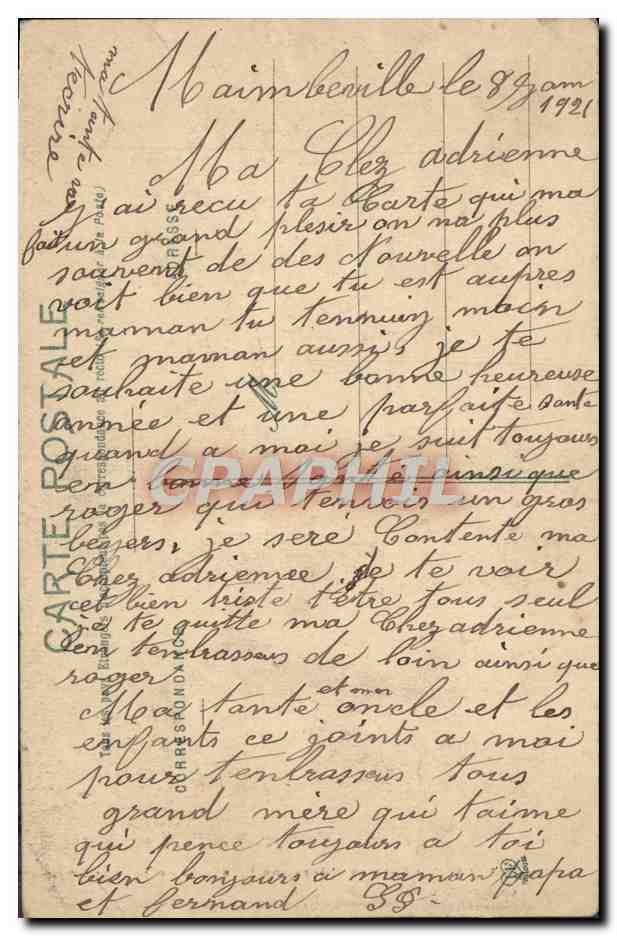 Maimbeville le 8 Jam
1921
Ma Chez adrienne
j ai recu ta Carte qui ma
fait un grand plesir on na plus
souvent de des Nouvelle on
voit bien que tu est aupres
maman tu tennuiz moin
et maman aussi, je te
souhaite une bonne heureuse
année et une parfaite sante
quand a moi je suit toujours
en bonne santé ainsi que
roger qui tenvois un gros
beyers, je seré Contente ma
Chez adrienne de te voir
cet bien triste d'etre tous seul
je te quitte ma Chez adrienne
en tenbrassens de loin ainsi que
roger
Ma tante et mon oncle et les
enfants ce joints a moi
pour tenbrassens tous
grand mère qui taime
qui pence toujours a toi
bien bonjours a maman papa
et fernand
ma tante va
tecrire
CARTE POSTALE
Tous les pays Etrangers n'acceptent pas la correspondance au recto (se renseigner à la Poste)
CORRESPONDANCE
ADRESSE
CPAPHIL